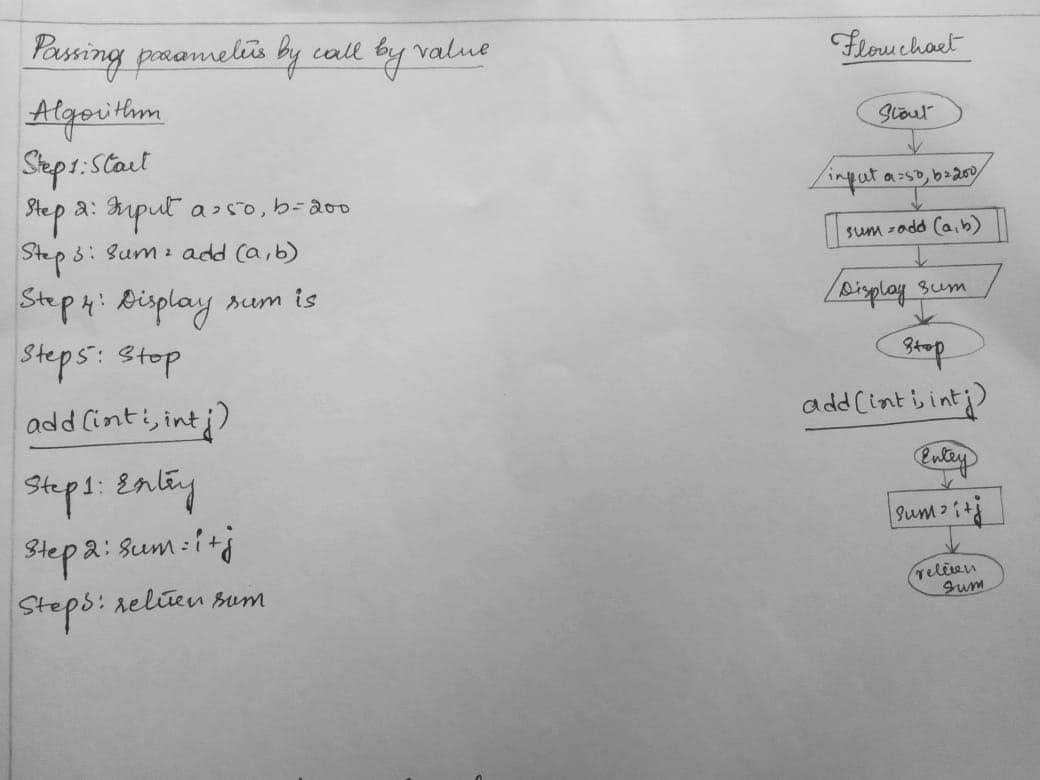 Passing parameters by call by value
Algorithm
Step 1: Start
Step 2: Input a=50, b=200
Step 3: Sum = add (a,b)
Step 4: Display sum is
Step 5: Stop
add (int i, int j)
Step 1: Entry
Step 2: Sum = i+j
Step 3: return sum
Flowchart
Start
input a=50, b=200
sum = add (a,b)
Display sum
Stop
add (int i, int j)
Entry
sum = i+j
return
sum